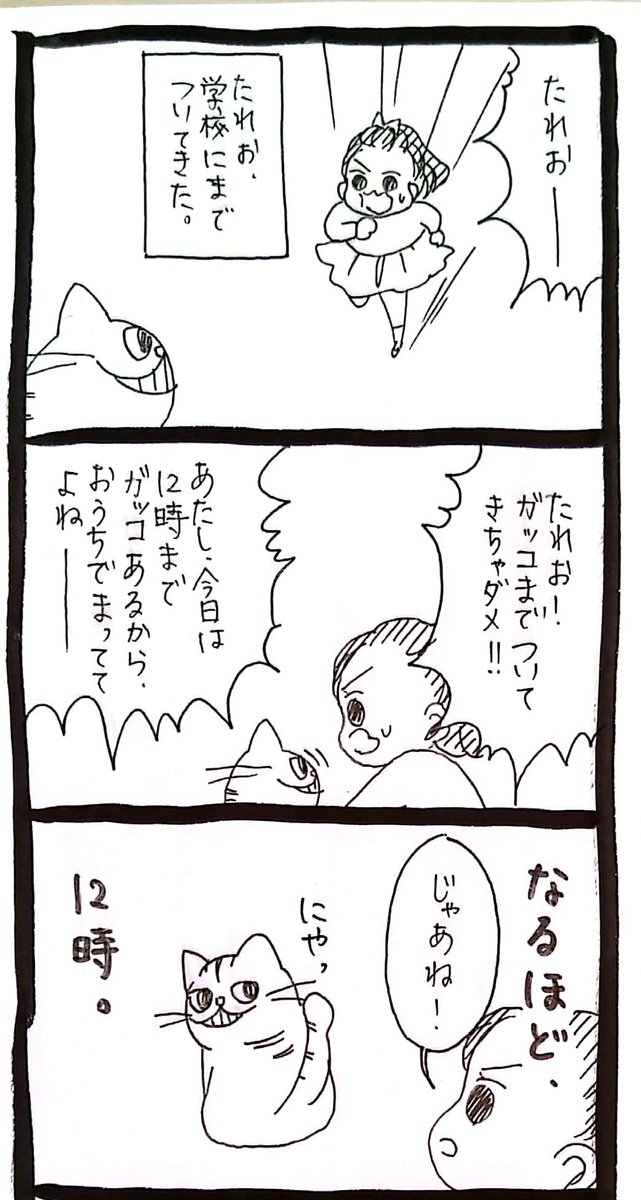 たれおーー
たれお、
学校にまで
ついてきた。
たれお!
ガッコまでついて
きちゃダメ!!
あたし、今日は
12時まで
ガッコあるから、
おうちでまってて
よねーー
なるほど、
じゃあね!
にやっ
12時。